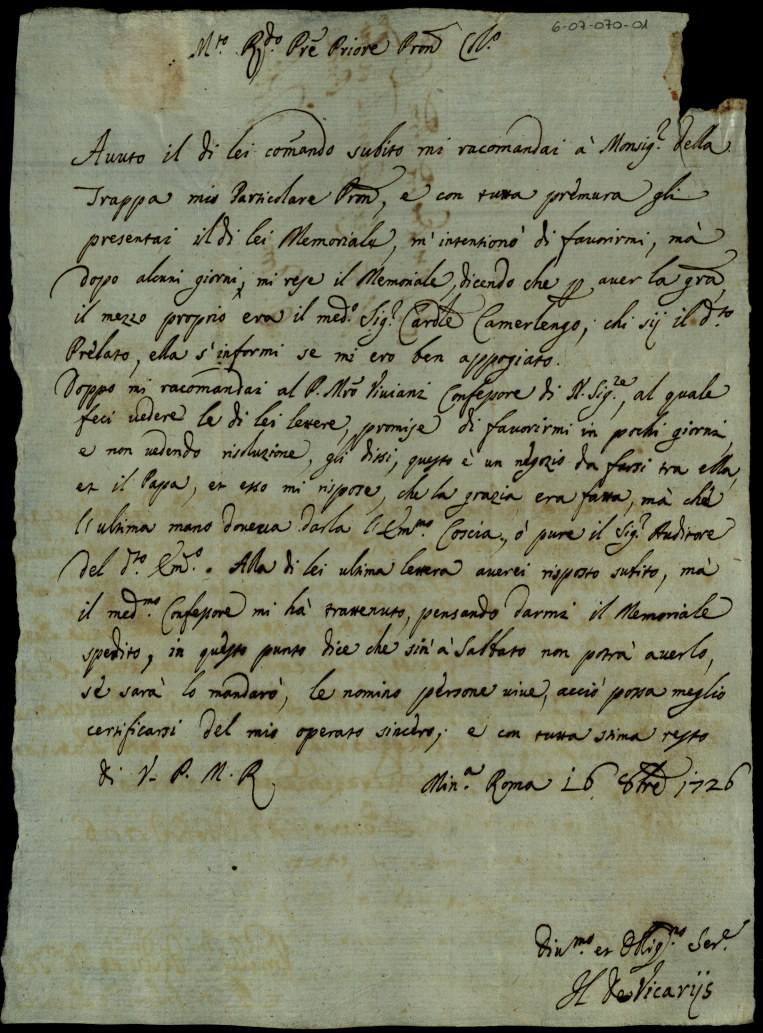 6-07-070-01
M.to R.do Pre Priore Pron Col.o
Auuto il di lei comando subito mi racomandai à Monsig.r della
Trappa mio Particolare Pron, e con tutta prèmura gli
presentai il di lei Memoriale, m'intentionò di fauorirmi, mà
dopo alcuni giorni, mi rese il Memoriale, dicendo che p auer la gra,
il mezzo proprio era il med.o Sig.r Cardle Camerlengo, chi sij il d.to
Prèlato, ella s'informi se mi ero ben appogiato.
Doppo mi racomandai al P. Mro Viuiani Confessore di N. Sig.re, al quale
feci uedere le di lei lettere, promise di fauorirmi in pochi giorni,
e non uedendo risoluzione, gli dissi, questo è un négozio da farsi tra ella,
et il Papa, et esso mi rispose, che la grazia era fatta, mà che
l'ultima mano doueua darla l'Em.mo Coscia, ò pure il Sig.r Auditore
del d.to Em.o. Alla di lei ultima lettera auerei risposto subito, mà
il med.mo Confessore mi hà trattenuto, pensando darmi il Memoriale
spedito, in questo punto dice che sin'à Sabbato non potrà auerlo,
sè sarà lo mandarò, le nomino pèrsone uiue, acciò possa meglio
certificarsi del mio operato sincèro, e con tutta stima resto
di V. P. M. R.
Min.a Roma 16 8bre 1726
Diu.mo et Obblig.mo Ser.e
H de Vicarijs